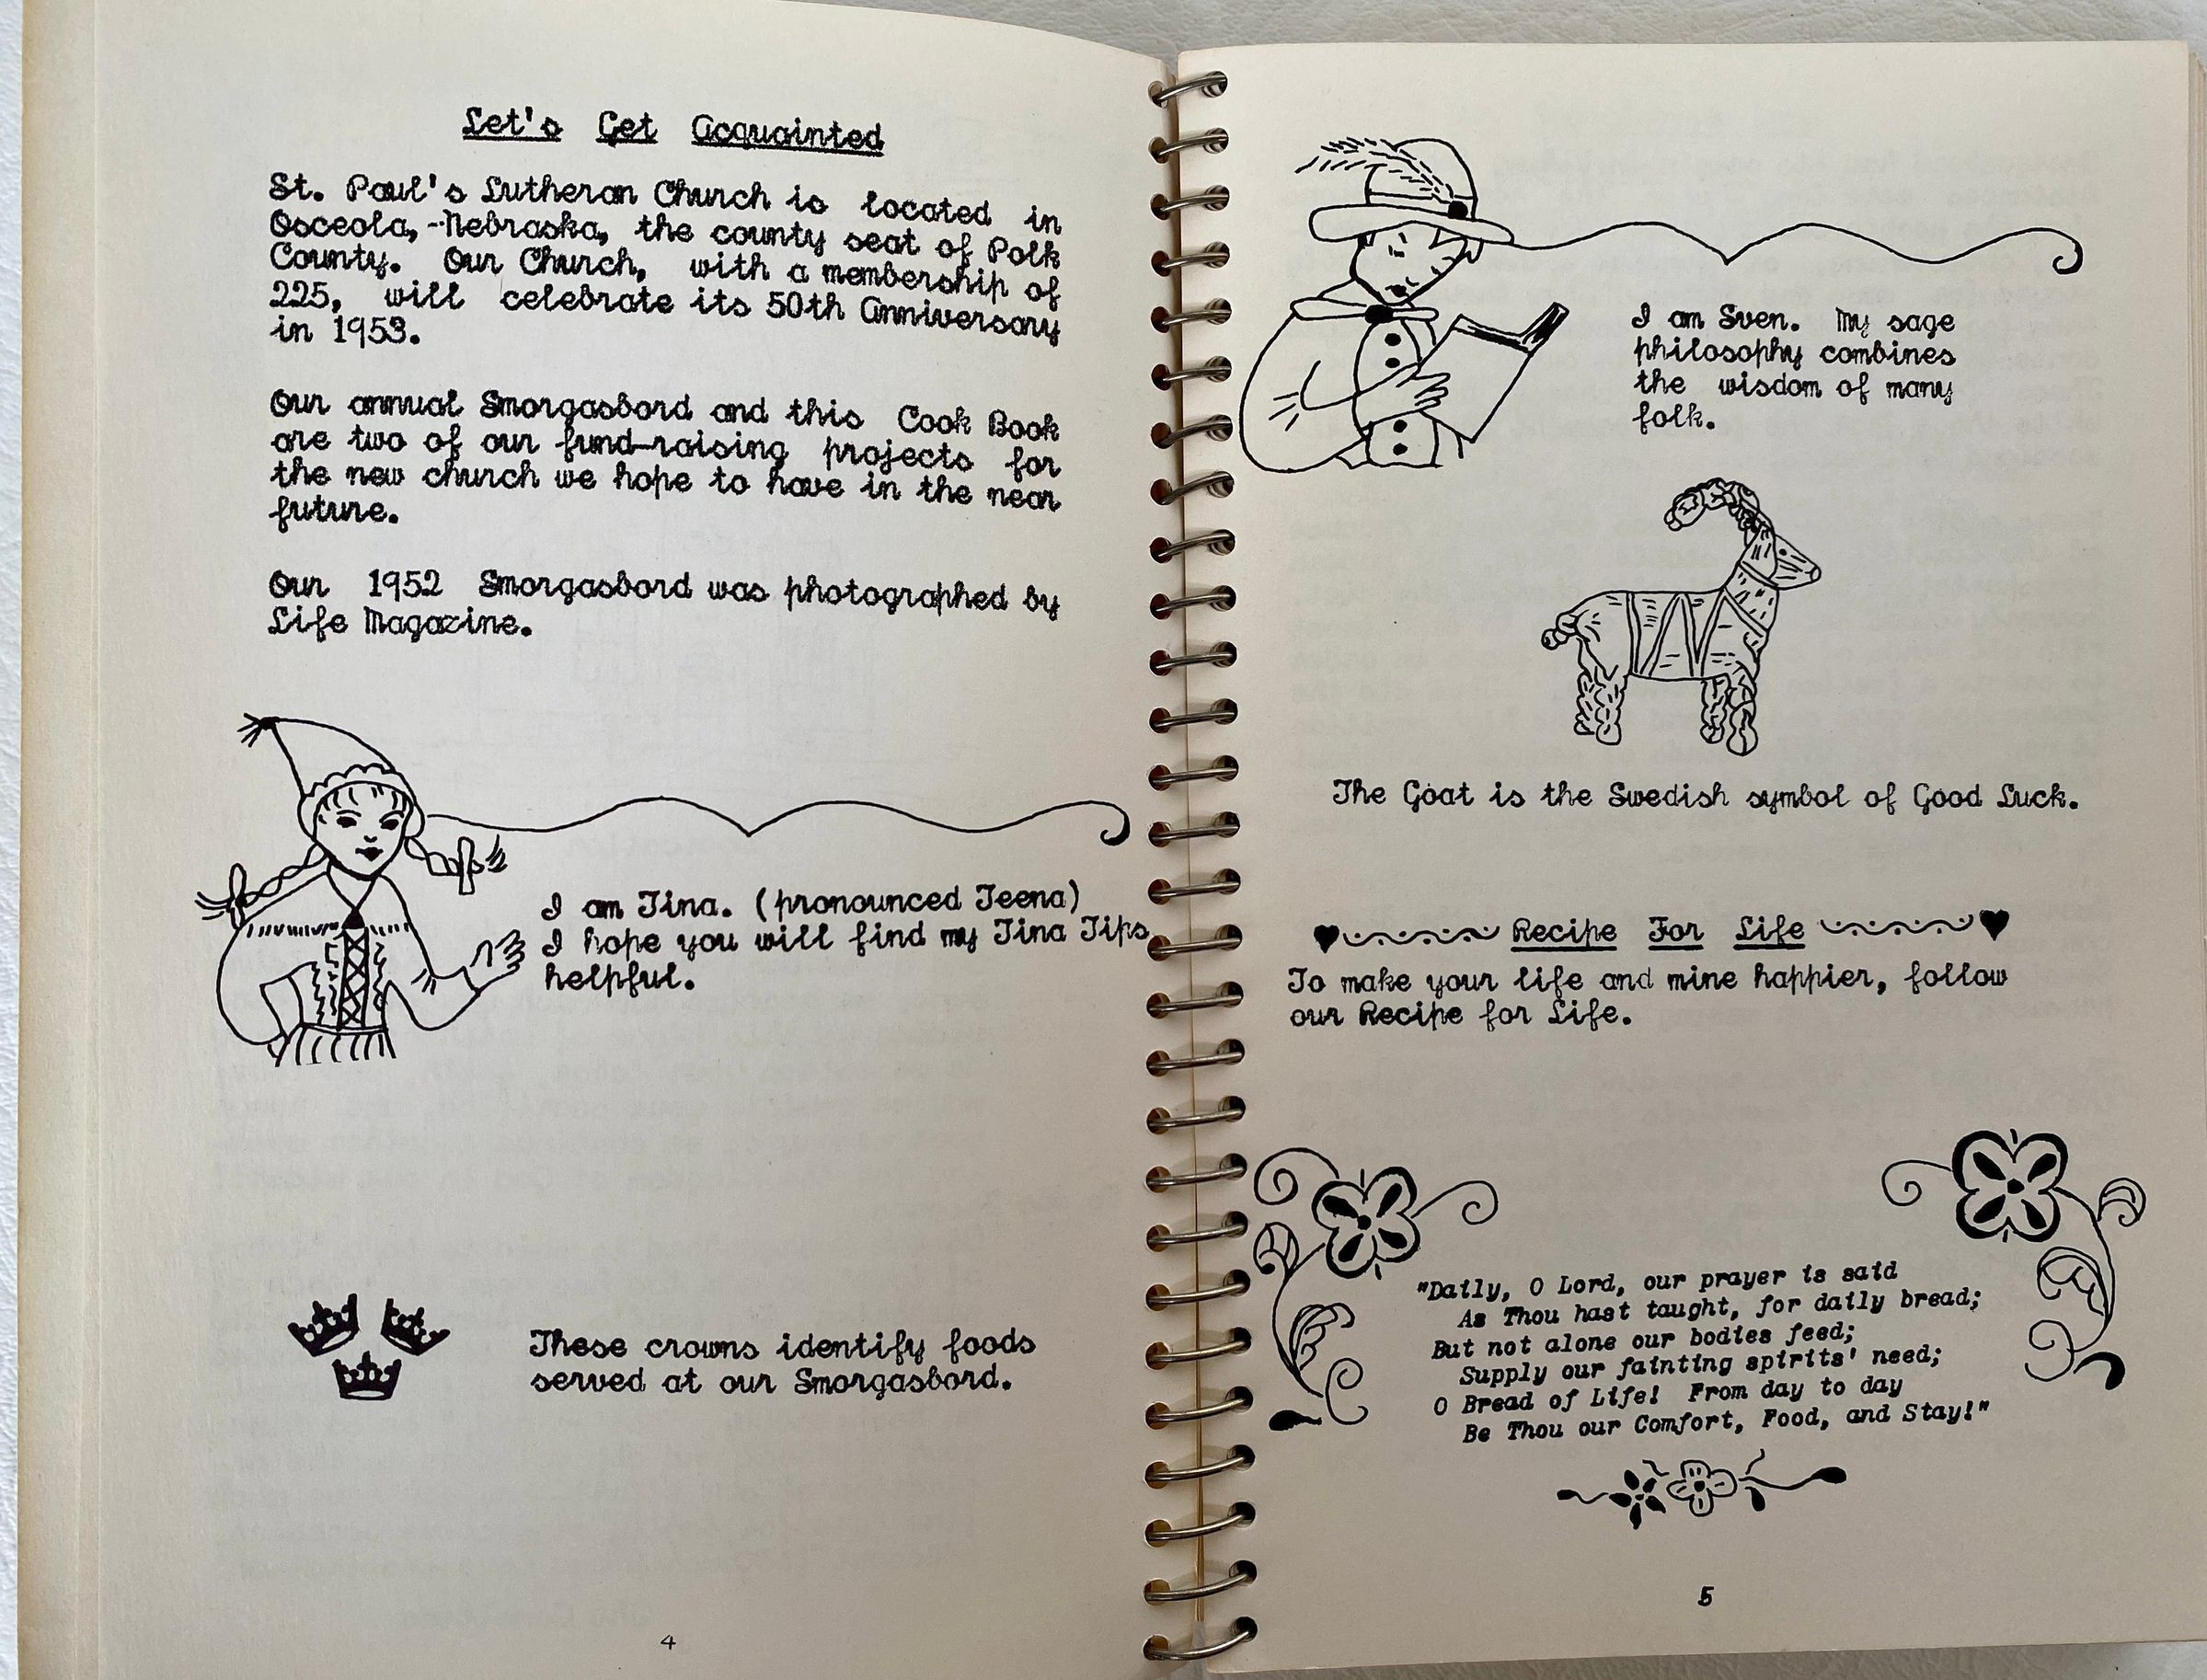 Let's Get Acquainted
St. Paul's Lutheran Church is located in
Osceola, Nebraska, the county seat of Polk
County. Our Church, with a membership of
225, will celebrate its 50th Anniversary
in 1953.
Our annual Smorgasbord and this Cook Book
are two of our fund-raising projects for
the new church we hope to have in the near
future.
Our 1952 Smorgasbord was photographed by
Life Magazine.
I am Tina. (pronounced Teena)
I hope you will find my Tina Tips
helpful.
These crowns identify foods
served at our Smorgasbord.
4
I am Sven. My sage
philosophy combines
the wisdom of many
folk.
The Goat is the Swedish symbol of Good Luck.
Recipe For Life
To make your life and mine happier, follow
our Recipe for Life.
"Daily, O Lord, our prayer is said
As Thou hast taught, for daily bread;
But not alone our bodies feed;
Supply our fainting spirits' need;
O Bread of Life! From day to day
Be Thou our Comfort, Food, and Stay!"
5